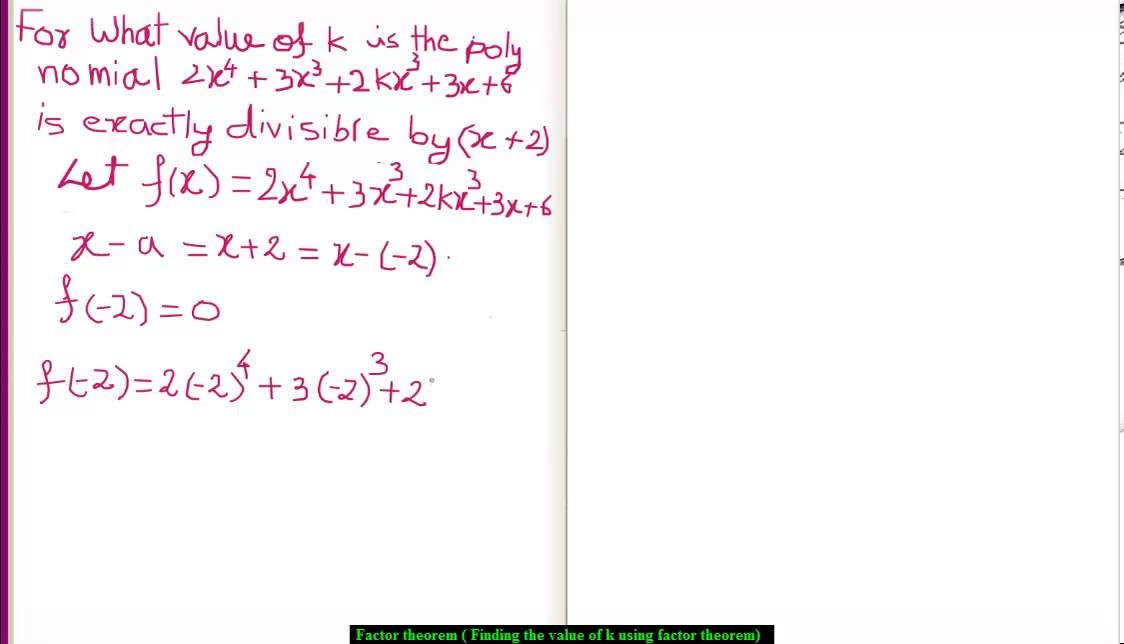 For What value of k is the poly
nomial 2x⁴ + 3x³ + 2kx³ + 3x + 6
is exactly divisible by (x + 2)
Let f(x) = 2x⁴ + 3x³ + 2kx³ + 3x + 6
x - a = x + 2 = x - (-2).
f(-2) = 0
f(-2) = 2(-2)⁴ + 3(-2)³ + 2
Factor theorem ( Finding the value of k using factor theorem)